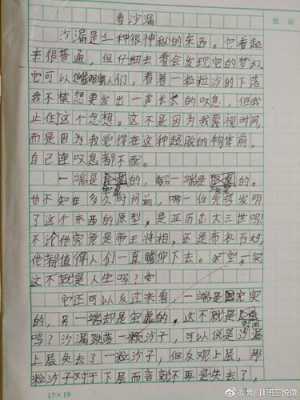 看沙漏
沙漏是一种很神秘的东西。它看起
来很普通，但仔细去看会发现它的梦幻
它可以人们，看着一粒粒沙的下落
我不禁想要发出一声长长的叹息，但我
止住这个念想。这不是因为我爱惜时间
而是因为我觉得在这种超脱的物里前，
自己连叹息都不配。
一端是的，另一端是的。
也不知在多久时间前，哪一位先祖发明
了这个东西的原型，是亚历山大三世吗
不论他究竟是帝王将相，还是布衣百姓
他都值得人们一直传下去。
这不就是人生吗？
它还可以反过来看，一端是实
的，另一端却是空虚的。这不就是
吗？沙漏残落一粒沙子，可以说是沙漏
上层失去了一粒沙子，但反观上层，那
粒沙子对于下层而言就不再是失去了，
17×19